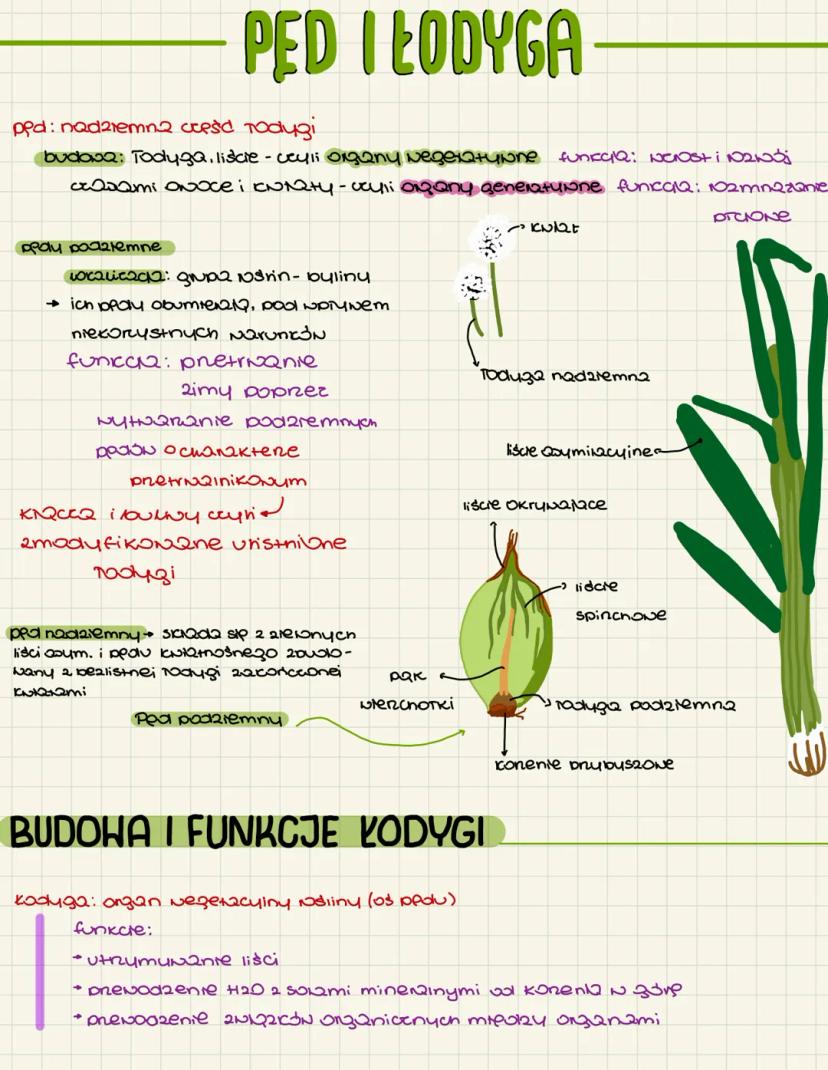 PĘD I ŁODYGA
pęd: nadziemna część łodygi
budowa: łodyga, liście - czyli organy wegetatywne funkcja: wzrost i rozwój
czasami owoce i kwiaty - czyli organy generatywne funkcja: rozmnażanie
płciowe
kwiat
pędy podziemne
lokalizacja: grupa roślin - byliny
→ ich pędy obumierają, pod wpływem
niekorzystnych warunków
funkcja: przetrwanie
zimy poprzez
wytwarzanie podziemnych
pędów o charakterze
przetrwalnikowym
łodyga nadziemna
liście asymilacyjne
liście okrywające
kłącza i bulwy czyli
zmodyfikowane ulistnione
łodygi
liście
spichrzowe
pęd nadziemny → składa się z zielonych
liści asym. i pędu kwiatnośnego zbudo-
wany z bezlistnej łodygi zakończonej
kwiatami
pąk
wierzchołki
łodyga podziemna
Pęd podziemny
korzenie przybyszowe
BUDOWA I FUNKCJE ŁODYGI
Łodyga: organ wegetacyjny rośliny (oś pędu)
funkcje:
→ utrzymywanie liści
→ przewodzenie H2O z solami mineralnymi od korzenia w górę
→ przewodzenie związków organicznych między organami